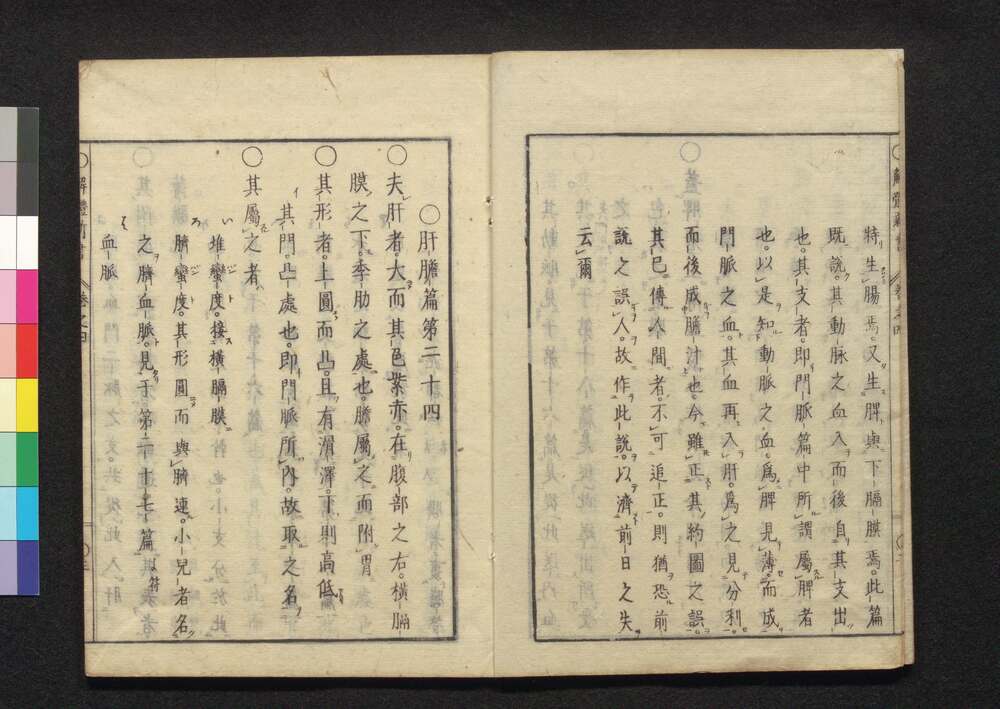 特生腸焉。又生脾與下膈膜焉。此篇
既説。其動脉之血入而後自其支出
也。其支者。即門脈篇中所謂屬脾者
也。以是知動脈之血。爲脾見薄。而成
門脈之血。其血再入肝。爲之見分利。
而後成膽汁也。今雖正其約圖之誤。
其已傳人間者。不可追正。則猶恐前
説之誤人。故作此説。以濟前日之失
云爾
〇肝膽篇第二十四
〇夫肝者。大而其色紫赤。在腹部之右。橫膈
膜之下。季肋之處也。膽屬之而附胃
〇其形者。上圓而凸。且有滑澤。下則高低
其門。凸處也。即門脈所内。故取之名
〇其屬之者
い堆蠻度。接橫膈膜
ろ臍蠻度。其形圓而與臍連。小兒者名
之臍血脈。見于第二十七篇よ符
は血脈
解體新書 卷之四